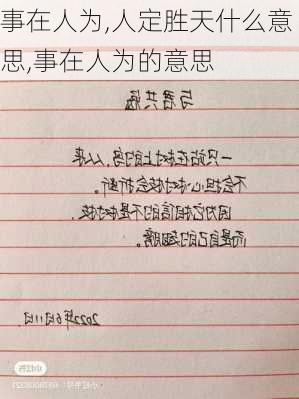 事在人为,人定胜天什么意
思,事在人为的意思
与君共勉
一只站在树上的鸟,从来
不会担心树枝会折断。
因为它相信的不是树枝,
而是自己的翅膀。
2022年6月11日
小红书
小红书号: